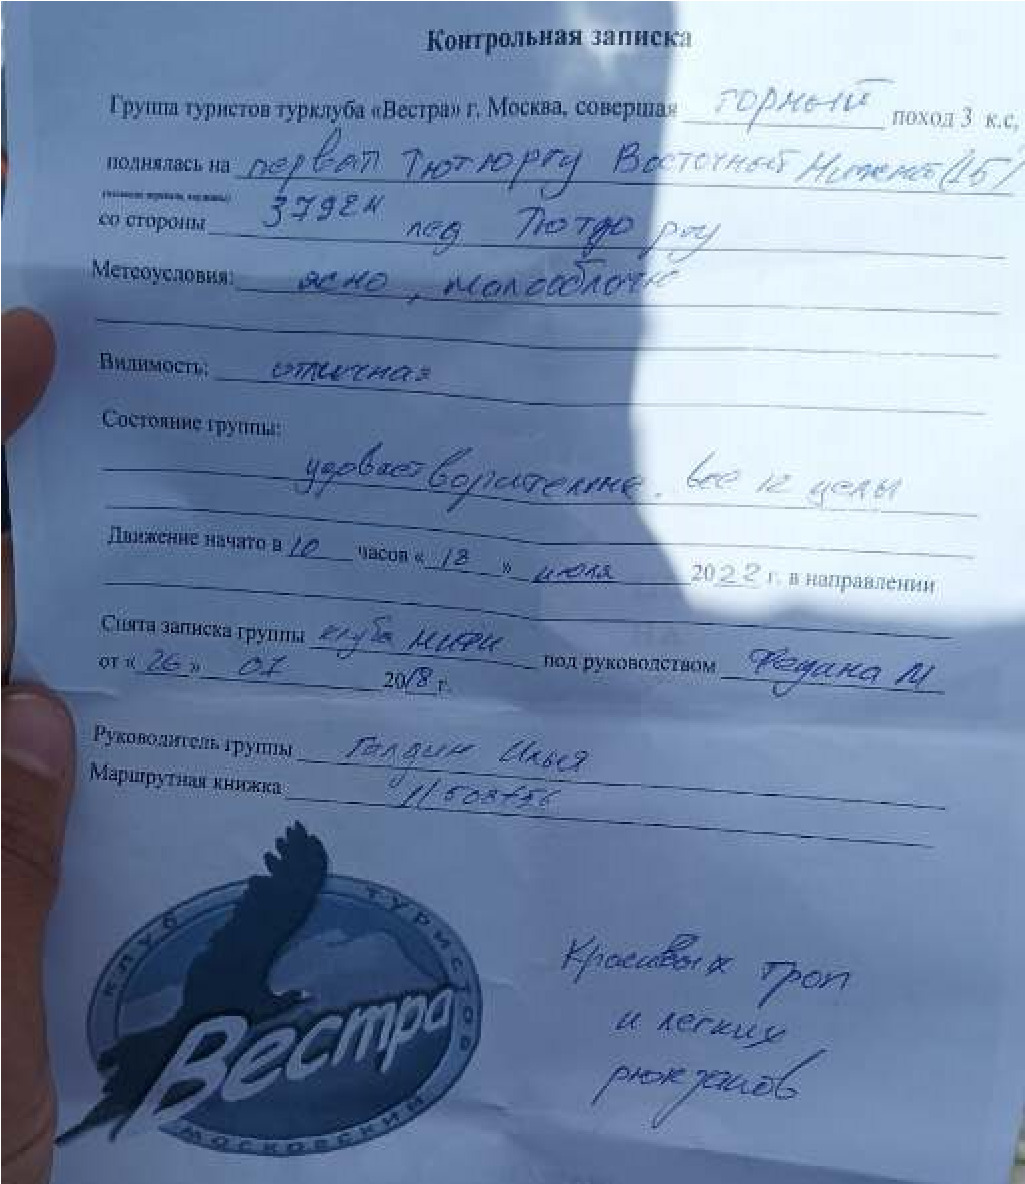 Контрольная записка
Группа туристов турклуба «Вестра» г. Москва, совершая горный поход 3 к.с,
поднялась на перевал Тютюргу Восточный Нижний (1Б)
со стороны 3792м лед Тютдо ргу
Метеоусловия: ясно, малооблачно
Видимость: отличная
Состояние группы:
удовлетворительное. Все 12 целы
Движение начато в 10 часов « 18 » июля 2022 г. в направлении
Снята записка группы клуба МИФИ под руководством Федина М
от « 26 » 07 2018 г.
Руководитель группы Галдин Илья
Маршрутная книжка
КЛУБ ТУРИСТОВ
Вестра
МОСКОВСКИЙ
Красивых троп
и легких
рюкзаков